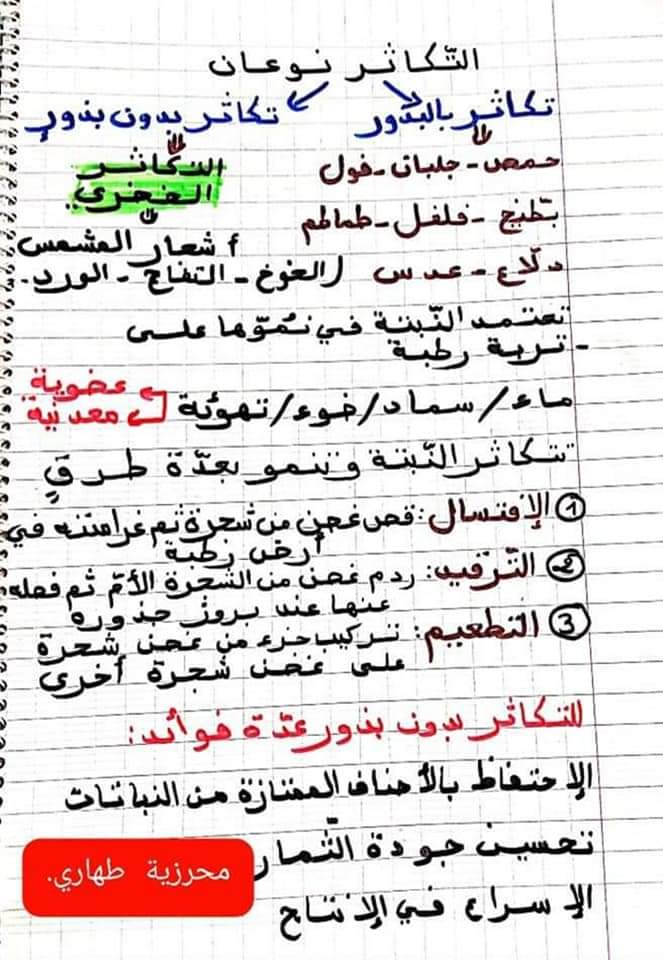 التّكاثر نوعان
تكاثر بالبذور
تكاثر بدون بذورٍ
حمص - جلبان - فول
التكاثر
الخضري
بطيخ - فلفل - طماطم
أشعار المشمس
دلاع - عدس
الخوخ - التفاح - الورد.
تعتمد النّبتة في نموّها على
- تربة رطبة
ماء / سماد / ضوء / تهوئة
عضوية
معدنية
تتكاثر النّبتة وتنمو بعدّة طرقٍ
① الإفتسال: قص غصن من شجرة ثم غراسته في
أرض رطبة
② التّرقيد: ردم غصن من الشجرة الأمّ ثم فصله
عنها عند بروز جذوره
③ التطعيم: تركيب جزء من غصن شجرة
على غصن شجرة أخرى
للتكاثر بدون بذور عدّة فوائد:
الإحتفاظ بالأصناف الممتازة من النباتات
تحسين جودة الثّمار
محرزية طهاري.
الإسراع في الإنتاج